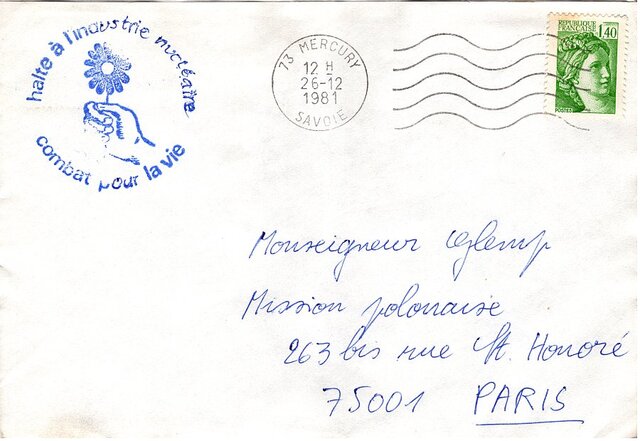 halte à l'industrie nucléaire
combat pour la vie
73 MERCURY
12 H
26-12
1981
SAVOIE
REPUBLIQUE
FRANÇAISE
1,40
Monseigneur Glemp
Mission polonaise
263 bis rue St. Honoré
75001 PARIS